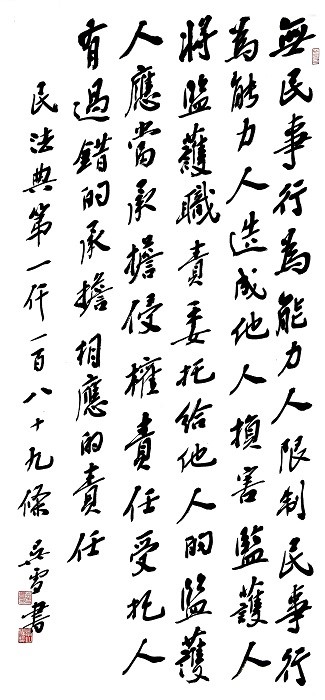 無民事行為能力人限制民事行
為能力人造成他人損害監護人
將監護職責委托給他人的監護
人應當承擔侵權責任受托人
有過錯的承擔相應的責任
民法典第一仟一百八十九條 吳雪書